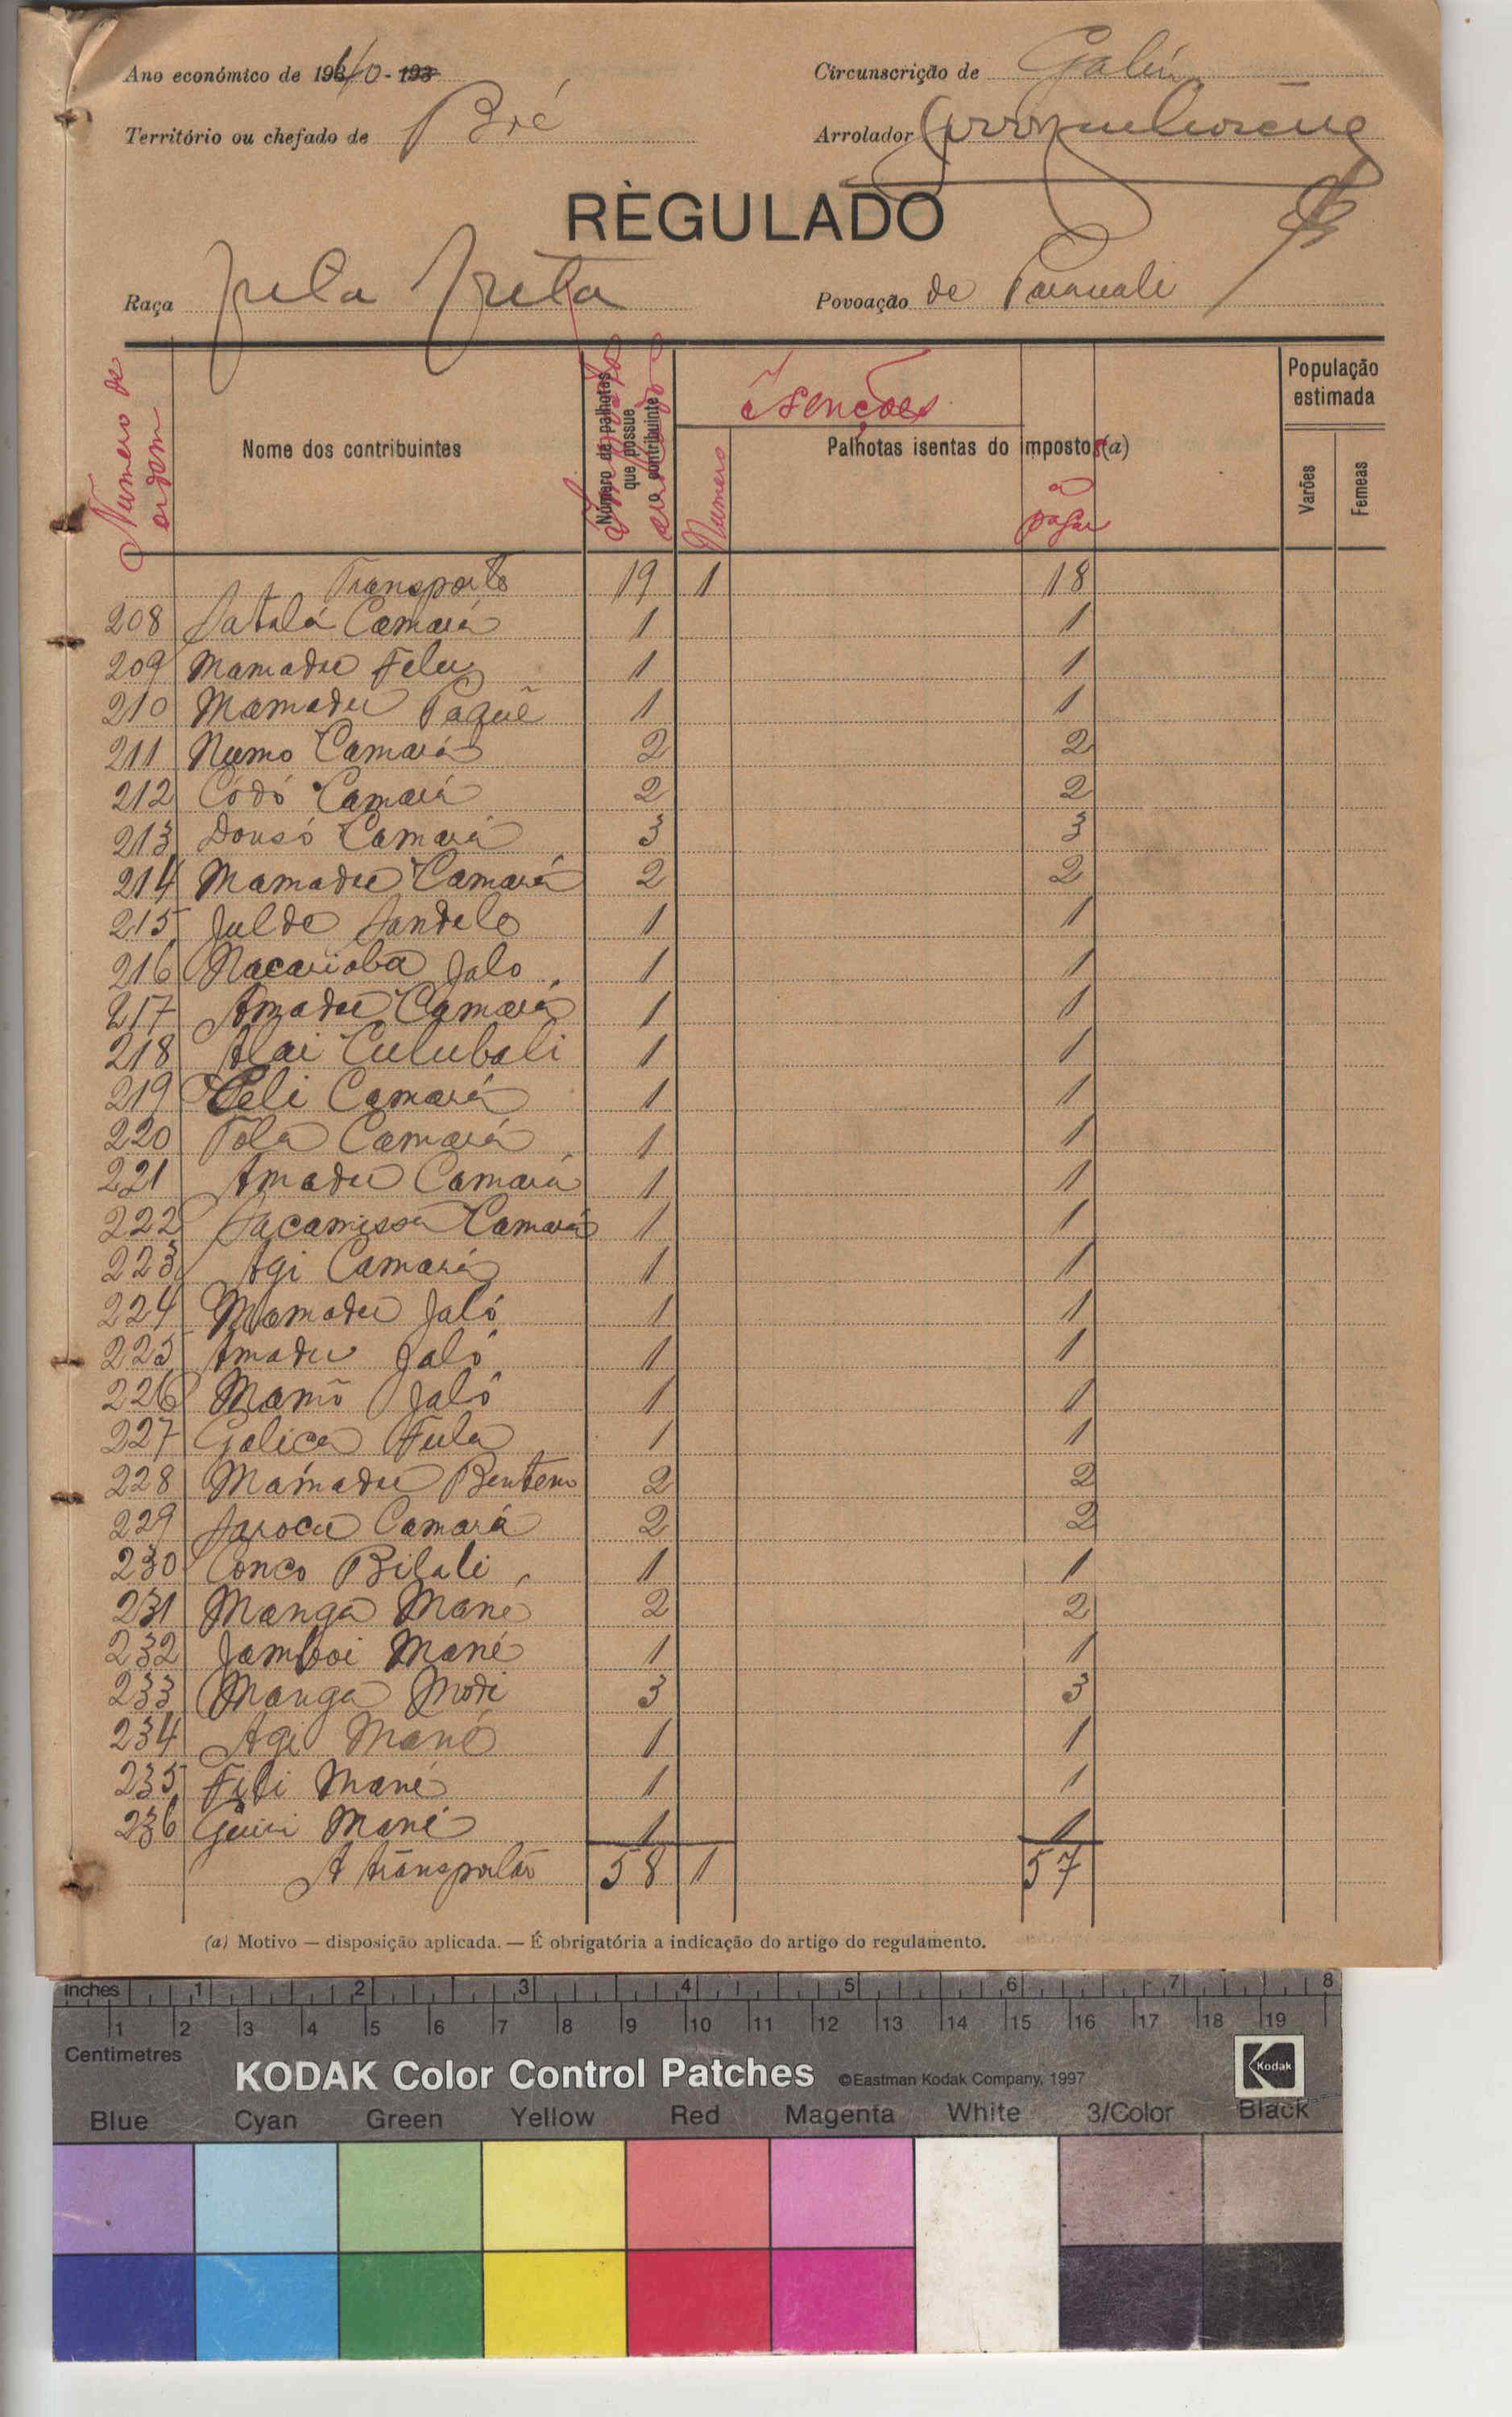 Ano económico de 1940 - 193
Circunscrição de Gabú
Território ou chefado de Bré
Arrolador
RÈGULADO
Raça Fula Preta
Povoação de
Numero de ordem
Nome dos contribuintes
Número de palhotas que possue o contribuinte
Isenções
Numero
Palhotas isentas do imposto (a)
a pagar
População estimada
Varões
Femeas
Transporte 19 1 18
208 Satalá Camará 1 1
209 Mamadu Felu 1 1
210 Mamadu Paquê 1 1
211 Numo Camará 2 2
212 Códó Camará 2 2
213 Dousó Camará 3 3
214 Mamadu Camará 2 2
215 Julde Sandelo 1 1
216 Nacarioba Jalo 1 1
217 Amadu Camará 1 1
218 Alai Culubali 1 1
219 Celi Camará 1 1
220 Tola Camará 1 1
221 Amadu Camará 1 1
222 Sacamissa Camará 1 1
223 Agi Camará 1 1
224 Mamadu Jaló 1 1
225 Amadu Jaló 1 1
226 Mamõ Jaló 1 1
227 Galica Fula 1 1
228 Mamadu Bentem 2 2
229 Sarocu Camará 2 2
230 Conco Bilali 1 1
231 Manga Mané 2 2
232 Jamboi Mané 1 1
233 Manga Modi 3 3
234 Agi Mané 1 1
235 Fili Mané 1 1
236 Mané 1 1
A transportar 58 1 57
(a) Motivo — disposição aplicada. — É obrigatória a indicação do artigo do regulamento.
inches 1 2 3 4 5 6 7 8
1 2 3 4 5 6 7 8 9 10 11 12 13 14 15 16 17 18 19
Centimetres
KODAK Color Control Patches ©Eastman Kodak Company, 1997 Kodak
Blue Cyan Green Yellow Red Magenta White 3/Color Black